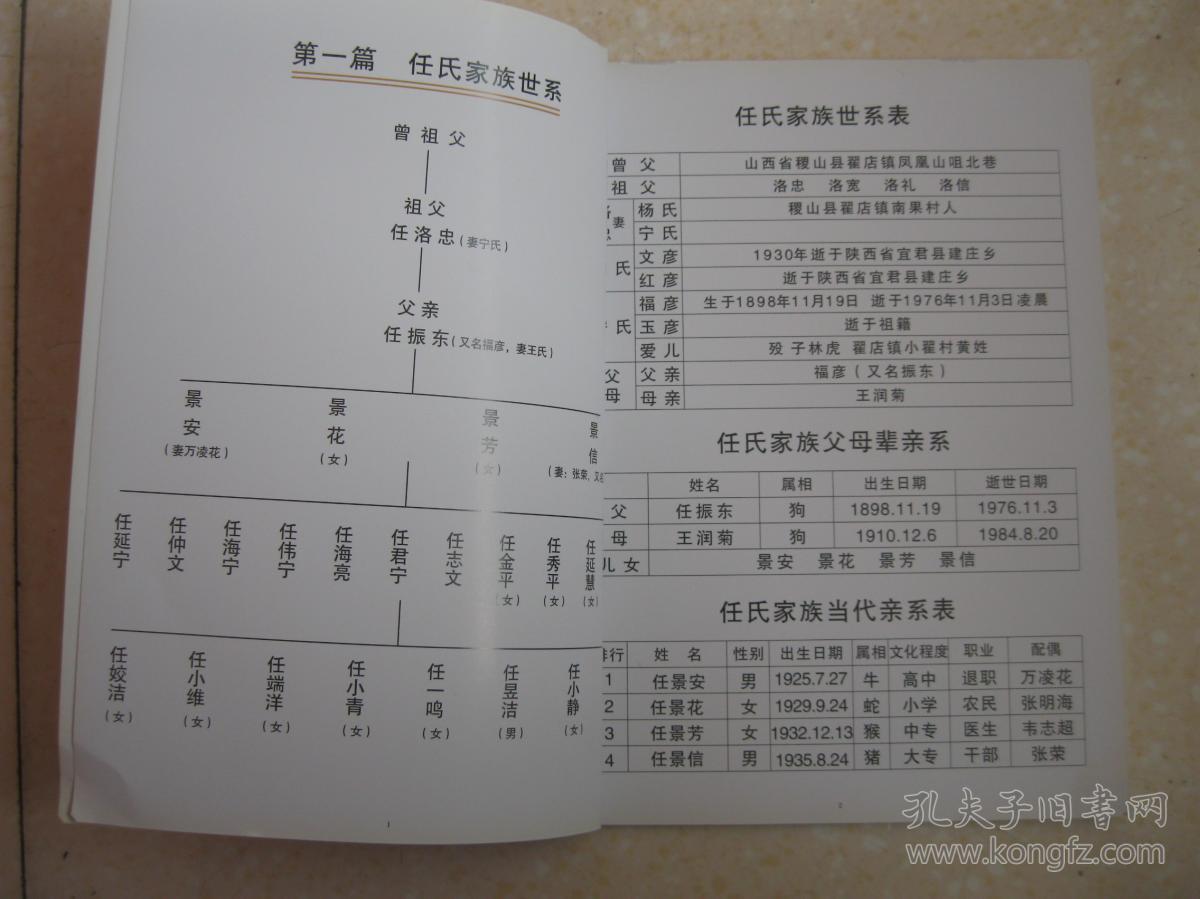 第一篇 任氏家族世系
曾祖父
祖父
任洛忠(妻宁氏)
父亲
任振东(又名福彦,妻王氏)
景安(妻万凌花) 景花(女) 景芳(女) 景信(妻:张荣,又名
任延宁 任仲文 任海宁 任伟宁 任海亮 任君宁 任志文 任金平(女) 任秀平(女) 任延慧(女)
任姣洁(女) 任小维(女) 任端洋(女) 任小青(女) 任一鸣(女) 任昱洁(男) 任小静(女)
1
任氏家族世系表
曾父 山西省稷山县翟店镇凤凰山咀北巷
祖父 洛忠 洛宽 洛礼 洛信
妻 杨氏 稷山县翟店镇南果村人
宁氏
文彦 1930年逝于陕西省宜君县建庄乡
氏 红彦 逝于陕西省宜君县建庄乡
福彦 生于1898年11月19日 逝于1976年11月3日凌晨
氏 玉彦 逝于祖籍
爱儿 殁 子林虎 翟店镇小翟村黄姓
父 父亲 福彦(又名振东)
母 母亲 王润菊
任氏家族父母辈亲系
姓名 属相 出生日期 逝世日期
父 任振东 狗 1898.11.19 1976.11.3
母 王润菊 狗 1910.12.6 1984.8.20
儿女 景安 景花 景芳 景信
任氏家族当代亲系表
排行 姓名 性别 出生日期 属相 文化程度 职业 配偶
1 任景安 男 1925.7.27 牛 高中 退职 万凌花
2 任景花 女 1929.9.24 蛇 小学 农民 张明海
3 任景芳 女 1932.12.13 猴 中专 医生 韦志超
4 任景信 男 1935.8.24 猪 大专 干部 张荣
2
孔夫子旧书网
www.kongfz.com